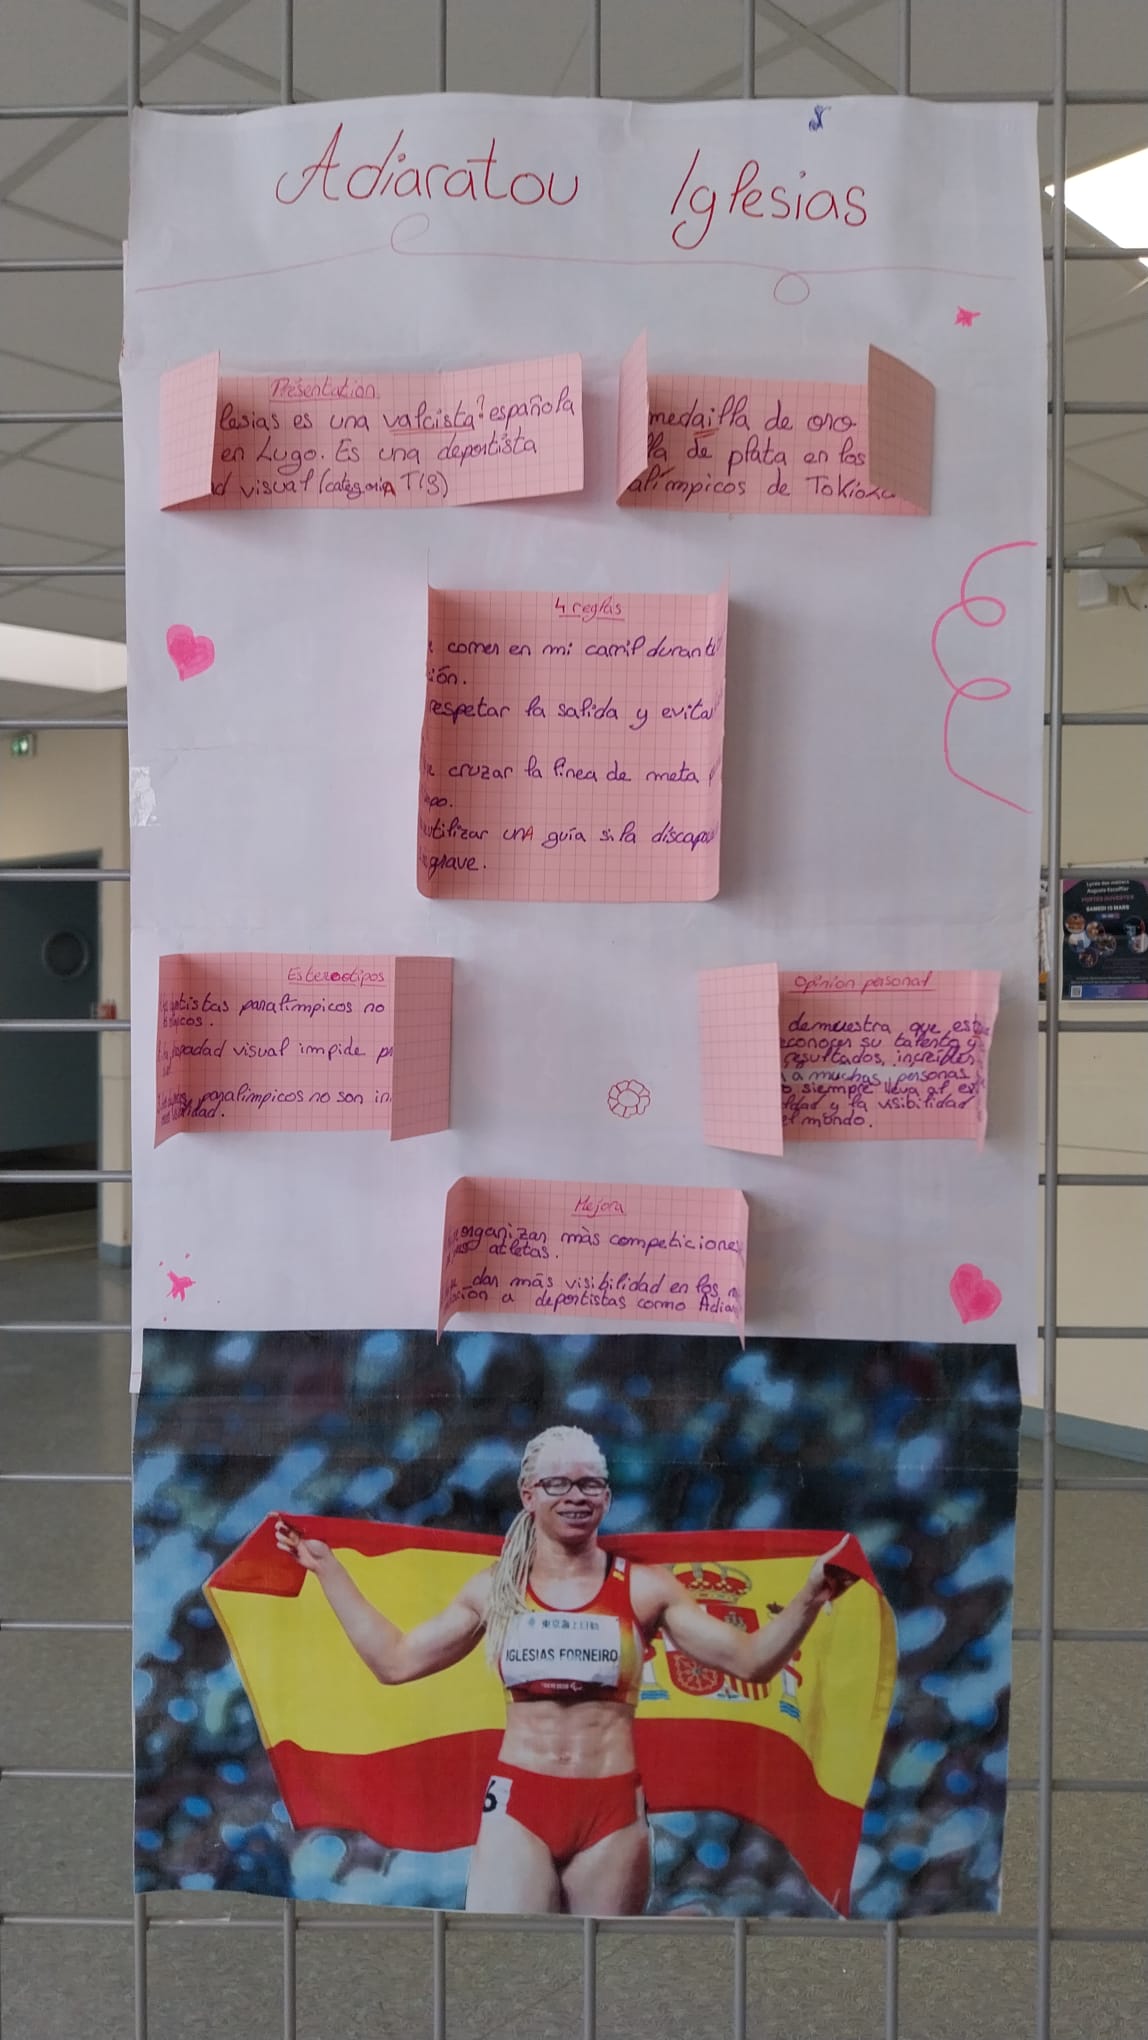 Adiaratou Iglesias
Présentation
lesias es una valcista? española
en Lugo. Es una deportista
d visual (categoria T13)
medailla de oro
la de plata en los
alímpicos de Tokio
4 reglas
comer en mi carril durante
ión.
respetar la salida y evita
cruzar la línea de meta
po.
utilizar unA guía si la discapa
grave.
Estereotipos
tistas paralímpicos no
icos.
padad visual impide p
paralímpicos no son in
idad.
Opinion personal
demuestra que est
econocer su talento y
resultados increíbles
a muchas personas
o siempre lleva al es
ldad y la visibilidad
el mondo.
Mejora
organizar màs competicione
atletas.
dar más visibilidad en los m
ción a deportistas como Adiar
IGLESIAS FORNEIRO
6
Lycée des métiers
Auguste Escoffier
PORTES OUVERTES
SAMEDI 15 MARS